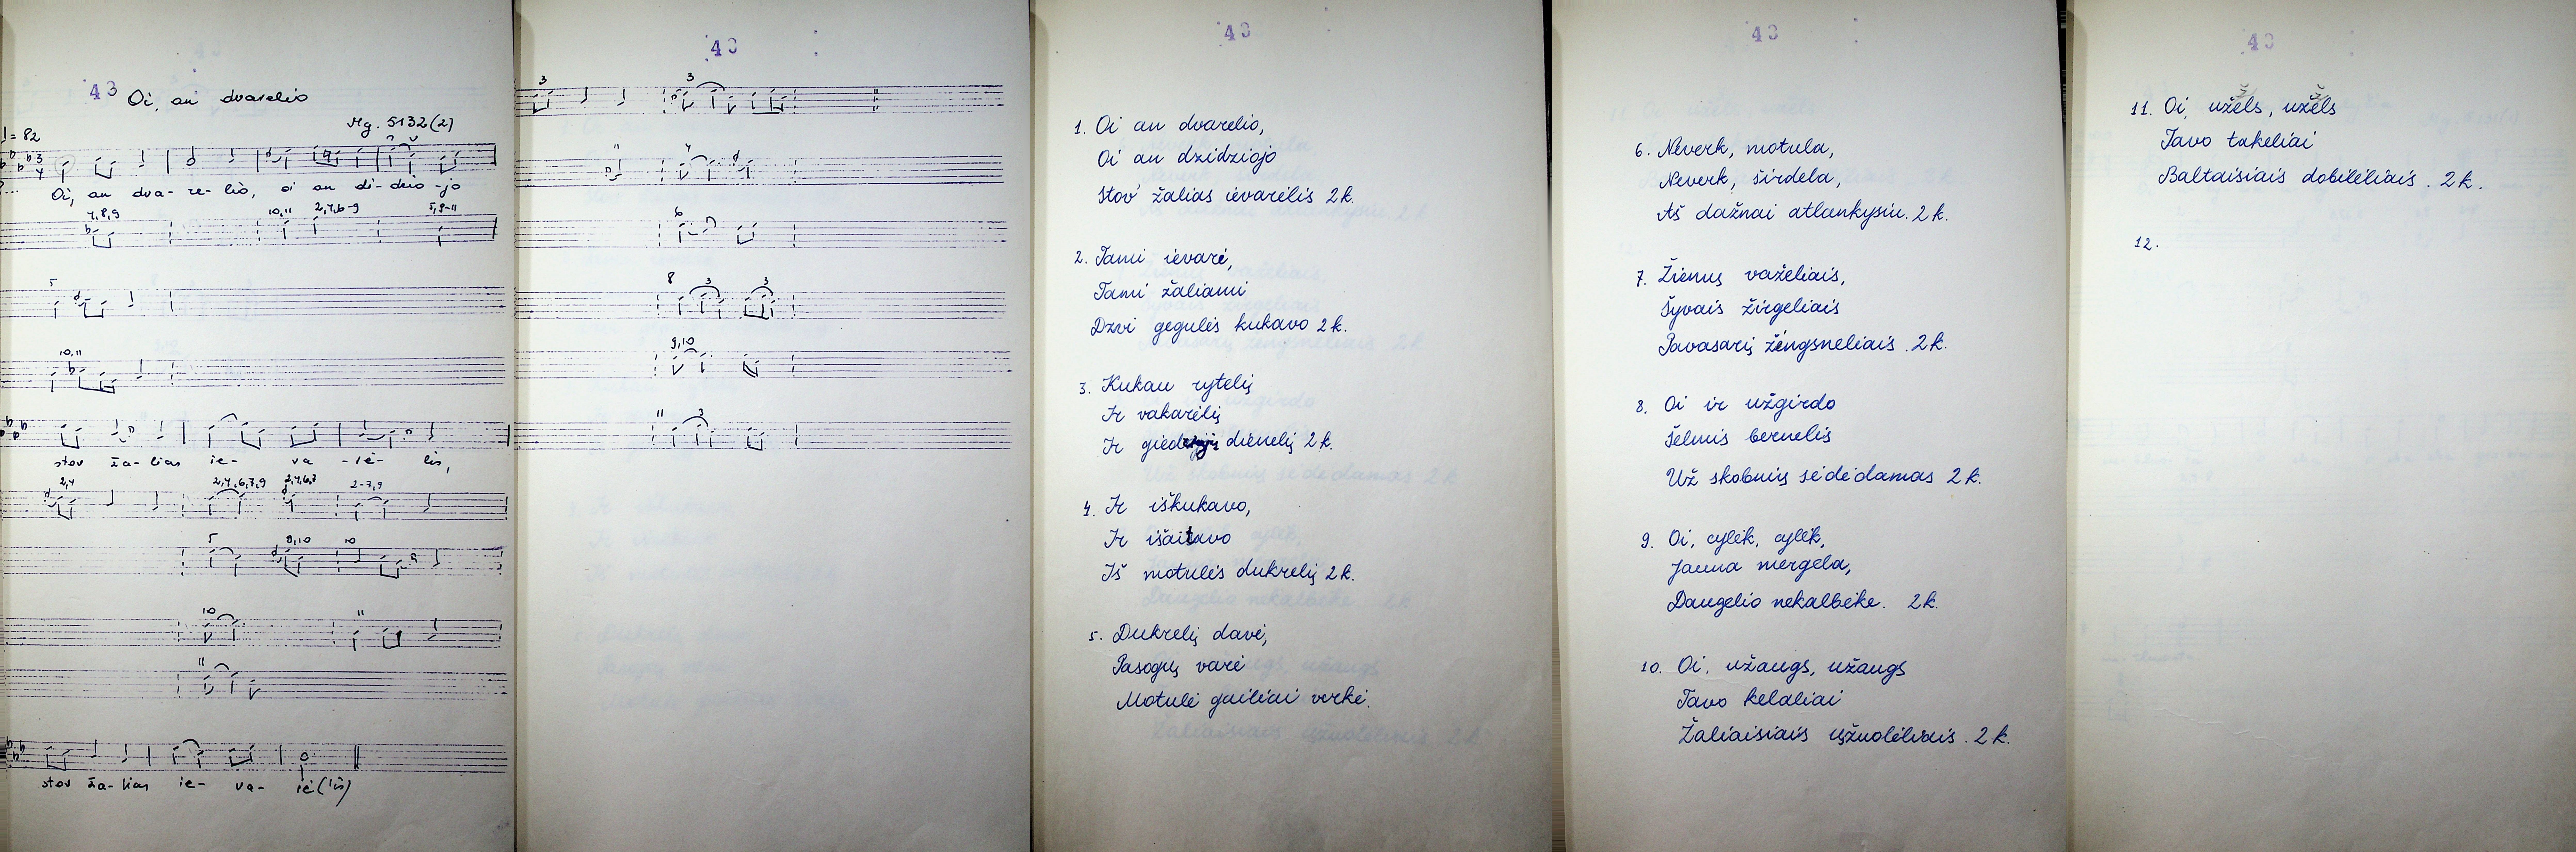 43
Oi, an dvarelio
Mg. 5132(2)
♩ = 82
Oi, an dva- re- lio, oi an di- džio -jo
7,8,9 10,11 2,4,6-9 5,8-11
5
10,11
stov ža- lias ie- va -rė- lis,
2,4 2,4,6,7,9 2,4,6,7 2-7,9
5 9,10 10
10 11
11
stov ža- lias ie- va- rė(lis)
43
3 3
11 4
6
8 3 3
9,10
11 3
43
1. Oi an dvarelio,
Oi an dzidziojo
Stov žalias ievarėlis 2 k.
2. Tami ievarė,
Tami žaliami
Dzvi gegulės kukavo 2 k.
3. Kukau rytelį
Ir vakarėlį
Ir dienelį 2 k.
4. Ir iškukavo,
Ir
Iš motulės dukrelį 2 k.
5. Dukrelį davė,
Pasogų varė
Motulė gailiai verkė.
43
6. Neverk, motula,
Neverk, širdela,
Aš dažnai atlankysiu. 2 k.
7. Žiemų važeliais,
Šyvais žirgeliais
Pavasarį žėngsneliais. 2 k.
8. Oi ir užgirdo
Šelmis bernelis
Už skobnių sėdėdamas 2 k.
9. Oi, cylėk, cylėk,
Jauna mergela,
Daugelio nekalbėke. 2 k.
10. Oi, užaugs, užaugs
Tavo kelaliai
Žaliaisiais ųžuolėliais. 2 k.
43
11. Oi, užėls, užėls
Tavo takeliai
Baltaisiais dobilėliais. 2 k.
12.